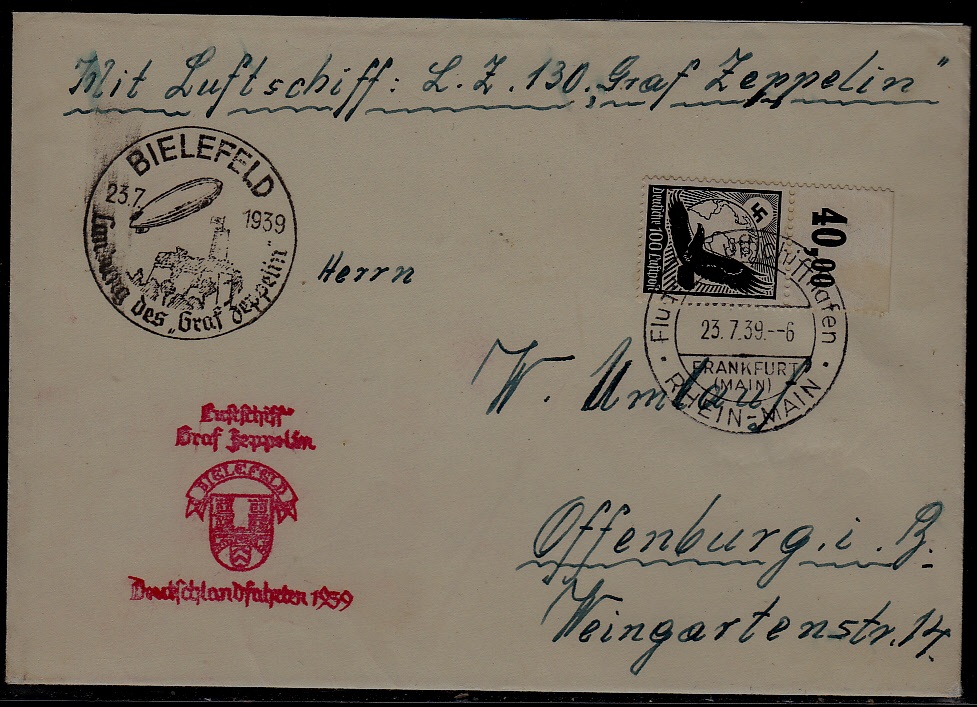 Mit Luftschiff: L.Z.130 „Graf Zeppelin“
BIELEFELD
23.7.
1939
Landung des „Graf Zeppelin“
Deutsche 100 Luftpost
40,00
Herrn
Flug- Luftschiffhafen
23.7.39.--6
FRANKFURT
(MAIN)
RHEIN-MAIN
W. Umlauf
Luftschiff
Graf Zeppelin
BIELEFELD
Deutschlandfahrten 1939
Offenburg. i. B.
Weingartenstr. 14.